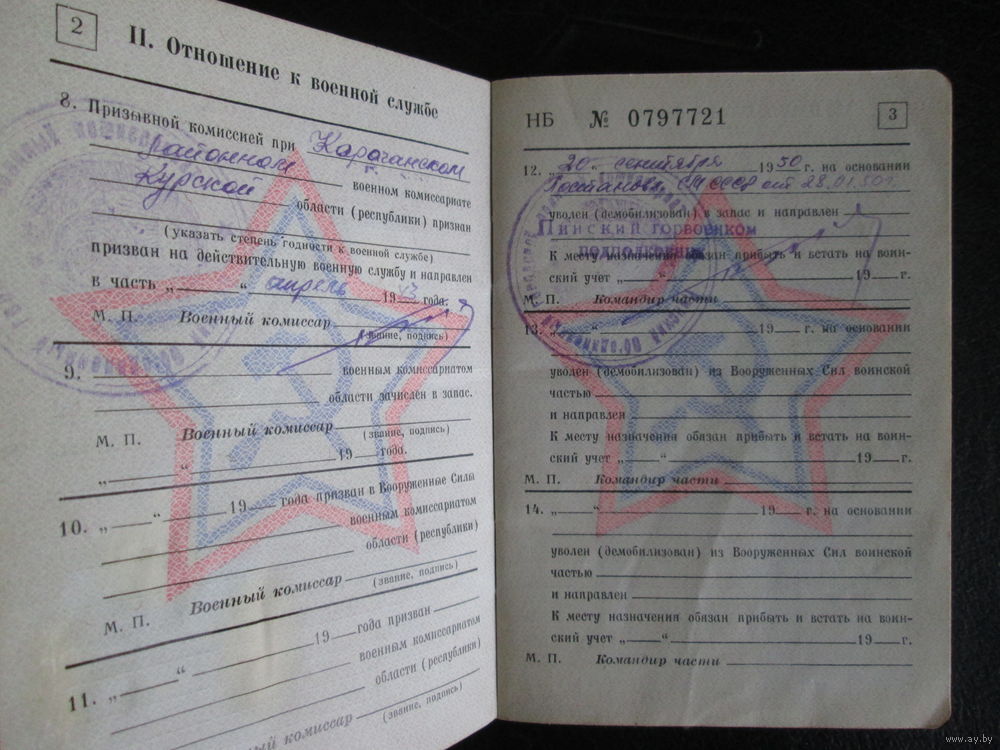 2
II. Отношение к военной службе
8. Призывной комиссией при
районном
военном комиссариате
Курской
области (республики) признан
(указать степень годности к военной службе)
призван на действительную военную службу и направлен
в часть „ “ апрель 19 43 года.
М. П. Военный комиссар
(звание, подпись)
9. военным комиссариатом
области зачислен в запас.
М. П. Военный комиссар
(звание, подпись)
„ “ 19 года.
10. „ “ 19 года призван в Вооруженные Силы
военным комиссариатом
области (республики)
М. П. Военный комиссар
(звание, подпись)
11. „ “ 19 года призван
военным комиссариатом
области (республики)
ый комиссар
(звание, подпись)
НБ № 0797721
3
12. „20“ сентября 1950 г. на основании
Постановл. СМ СССР от 28.01.50г.
уволен (демобилизован) в запас и направлен
Пинский горвоенком
подполковник
К месту назначения обязан прибыть и встать на воин-
ский учет „ “ 19 г.
М. П. Командир части
13. „ “ 19 г. на основании
уволен (демобилизован) из Вооруженных Сил воинской
частью
и направлен
К месту назначения обязан прибыть и встать на воин-
ский учет „ “ 19 г.
М. П. Командир части
14. „ “ 19 г. на основании
уволен (демобилизован) из Вооруженных Сил воинской
частью
и направлен
К месту назначения обязан прибыть и встать на воин-
ский учет „ “ 19 г.
М. П. Командир части
www.ay.by